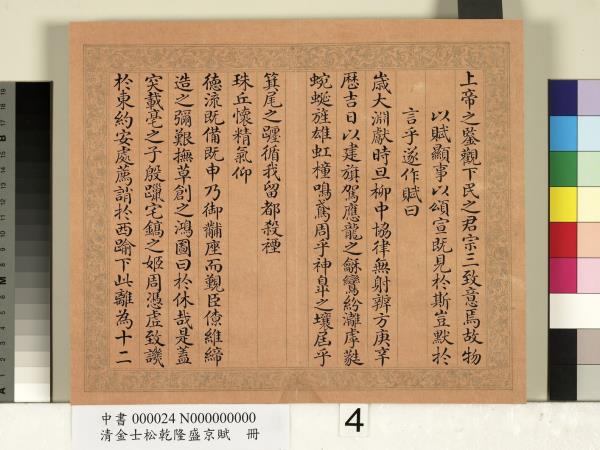 上帝之鑒觀下民之君宗三致意焉故物
以賦顯事以頌宣既見於斯豈默於
言乎遂作賦曰
歲大淵獻時旦柳中協律無射辨方庚辛
歷吉日以建旗駕應龍之龢鸞紛灕虖蕤
蜿蜒旌雄虹橦鳴鳶周乎神皐之壤屆乎
箕尾之躔循我留都殺禋
珠丘懷精氣仰
德流既備既申乃御黼座而覲臣僚維締
造之彌艱撫草創之鴻圖曰於休哉是蓋
突載亳之子殷躐宅鎬之姬周憑虛致譏
於東約安處薦誚於西踰下此離為十二
中書 000024 N000000000
清金士松乾隆盛京賦 冊
4